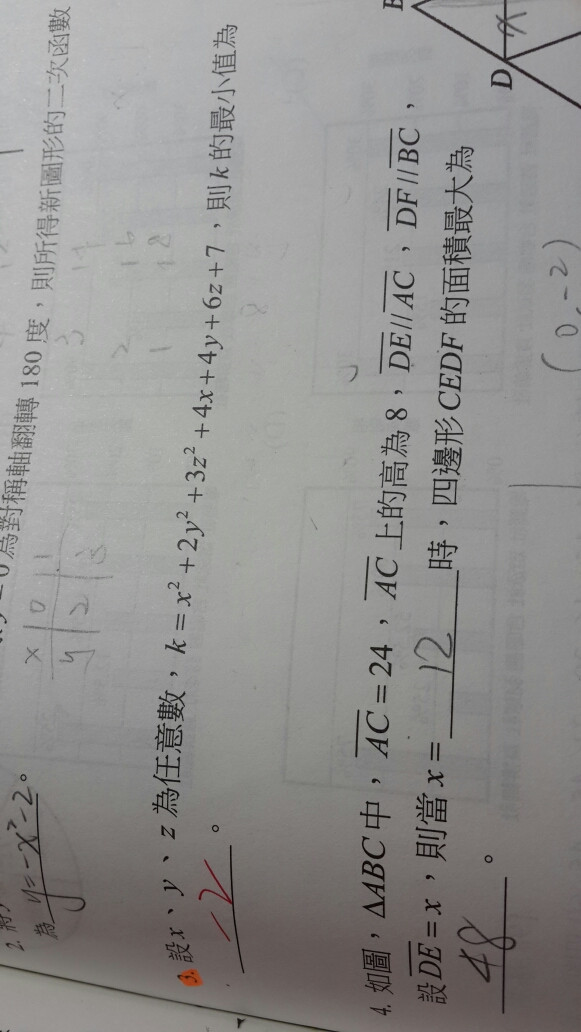 為對稱軸翻轉 180 度，則所得新圖形的二次函數
x | 0 | 1
y | 2 | 3
2. 將
為 y=-x²-2。
3. 設 x、y、z 為任意數，k = x² + 2y² + 3z² + 4x + 4y + 6z + 7，則 k 的最小值為
-2。
4. 如圖，ΔABC 中，AC = 24，AC 上的高為 8，DE // AC，DF // BC，
設 DE = x，則當 x = 12 時，四邊形 CEDF 的面積最大為
48。
(0,-2)
D
x